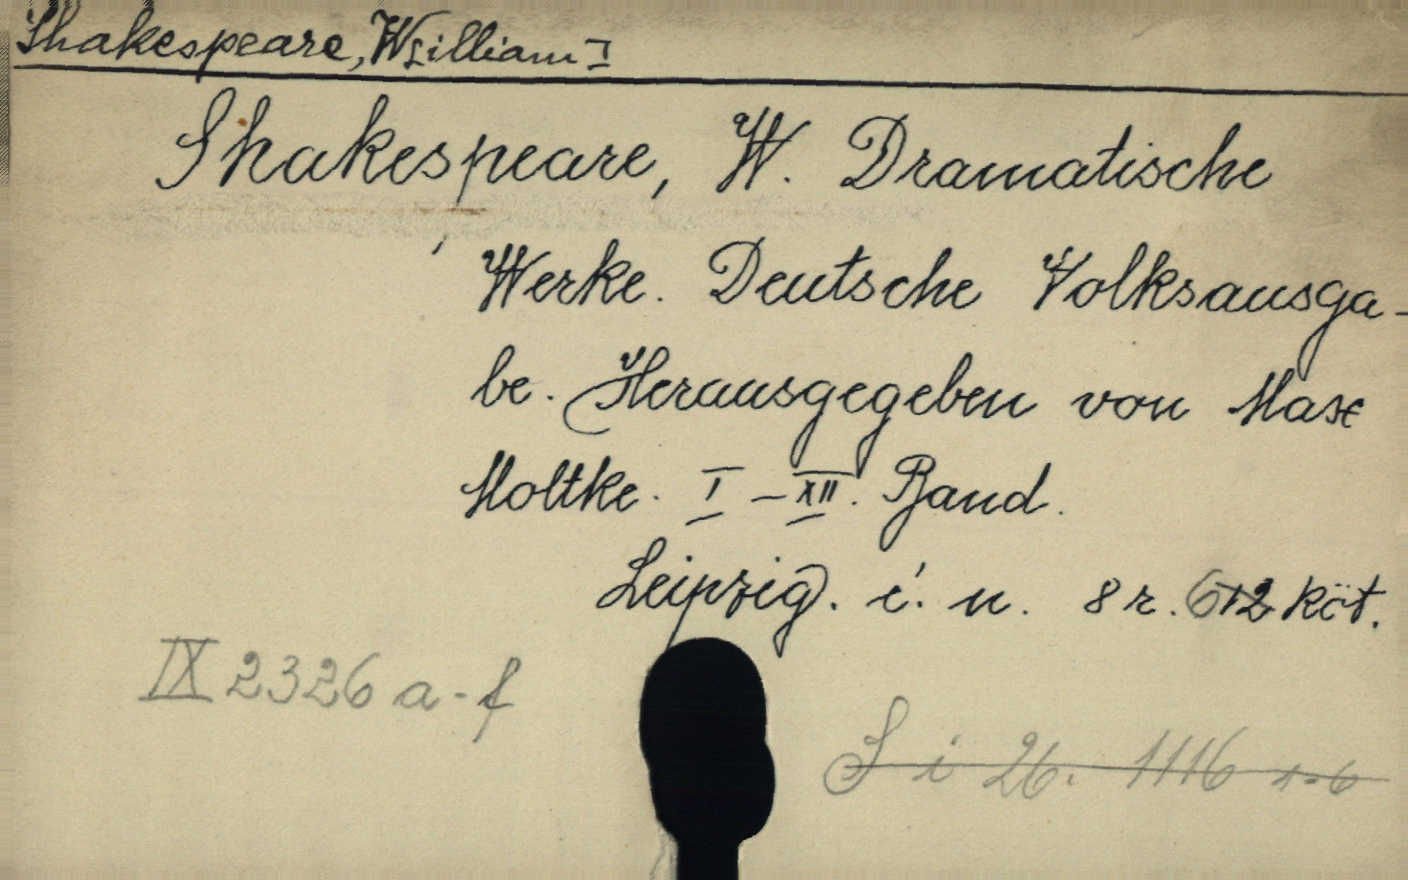 Shakespeare, W[illiam]
Shakespeare, W. Dramatische
Werke. Deutsche Volksausga-
be. Herausgegeben von Max
Moltke. I-XII. Band.
Leipzig. é. n. 8r. 6 köt.
IX 2326 a-f
S i 26. 1116 1-6